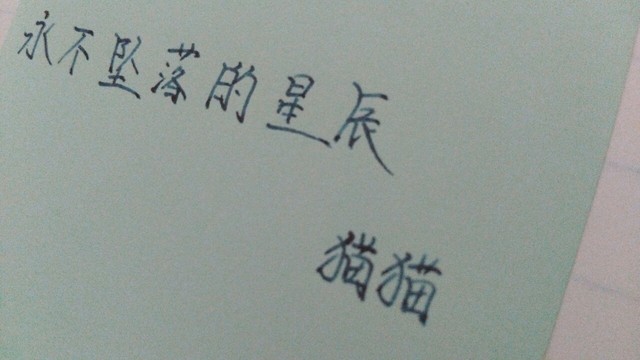 永不坠落的星辰
猫猫